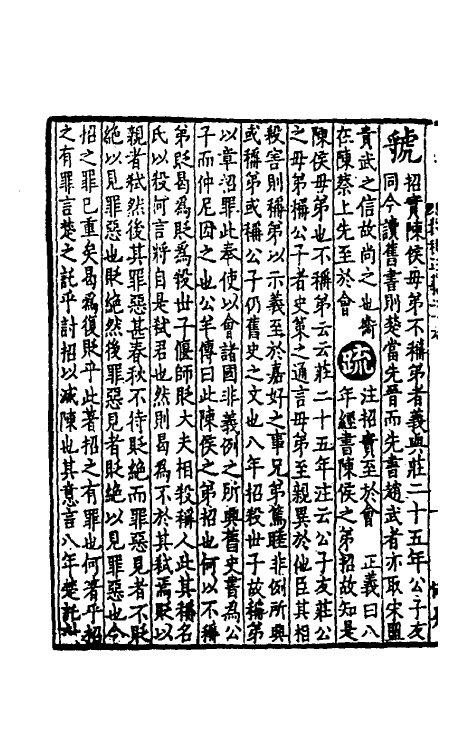 虢
招實陳侯母弟不稱弟者義與莊二十五年公子友
同今讀舊書則楚當先晉而先書趙武者亦取宋盟
貴武之信故尚之也衛
在陳蔡上先至於會
疏
注招實至於會 正義曰八
年經書陳侯之弟招故知是
陳侯母弟也不稱弟云云莊二十五年注云公子友莊公
之母弟稱公子者史策之通言母弟至親異於他臣其相
殺害則稱弟以示義至於嘉好之事兄弟篤睦非例所興
或稱弟或稱公子仍舊史之文也八年招殺世子故稱弟
以章招罪此奉使以會諸國非義例之所興舊史書為公
子而仲尼因之也公羊傳曰此陳侯之弟招也何以不稱
弟貶曷為貶為殺世子偃師貶大夫相殺稱人此其稱名
氏以殺何言將自是弒君也然則曷為不於其弒焉貶以
親者弒然後其罪惡甚春秋不待貶絕而罪惡見者不貶
絕以見罪惡也貶絕然後罪惡見者貶絕以見罪惡也今
招之罪已重矣曷為復貶乎此著招之有罪也何著乎招
之有罪言楚之託乎討招以滅陳也其意言八年楚託